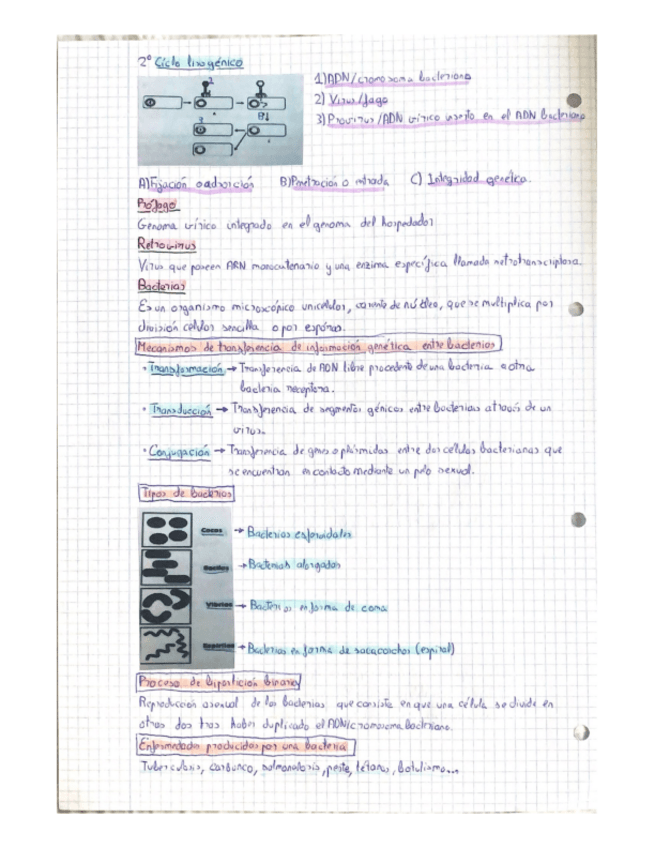 2º Ciclo lisogénico
1) ADN/cromosoma bacteriano
2) Virus/fago
3) Provirus/ADN vírico inserto en el ADN bacteriano
2
3
A) Fijación o adsorción B) Penetración o entrada C) Integridad genética.
Prófago
Genoma vírico integrado en el genoma del hospedador
Retrovirus
Virus que poseen ARN monocatenario y una enzima específica llamada retrotranscriptasa.
Bacterias
Es un organismo microscópico unicelular, carente de núcleo, que se multiplica por
división celular sencilla o por esporas.
Mecanismos de transferencia de información genética entre bacterias
• Transformación → Transferencia de ADN libre procedente de una bacteria a otra
bacteria receptora.
• Transducción → Transferencia de segmentos génicos entre bacterias a través de un
virus.
• Conjugación → Transferencia de genes o plásmidos entre dos células bacterianas que
se encuentran en contacto mediante un pelo sexual.
Tipos de bacterias
Cocos → Bacterias esferoidales
Bacilos → Bacterias alargadas
Vibrios → Bacterias en forma de coma
Espirilos → Bacterias en forma de sacacorchos (espiral)
Proceso de bipartición binaria
Reproducción asexual de las bacterias que consiste en que una célula se divide en
otras dos tras haber duplicado el ADN/cromosoma bacteriano.
Enfermedades producidas por una bacteria
Tuberculosis, carbunco, salmonelosis, peste, tétanos, botulismo...